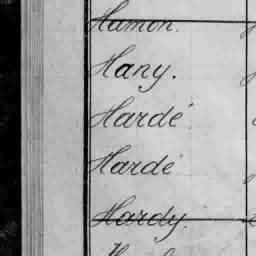 Hamon.
Hany.
Hardé
Hardé
Hardy.